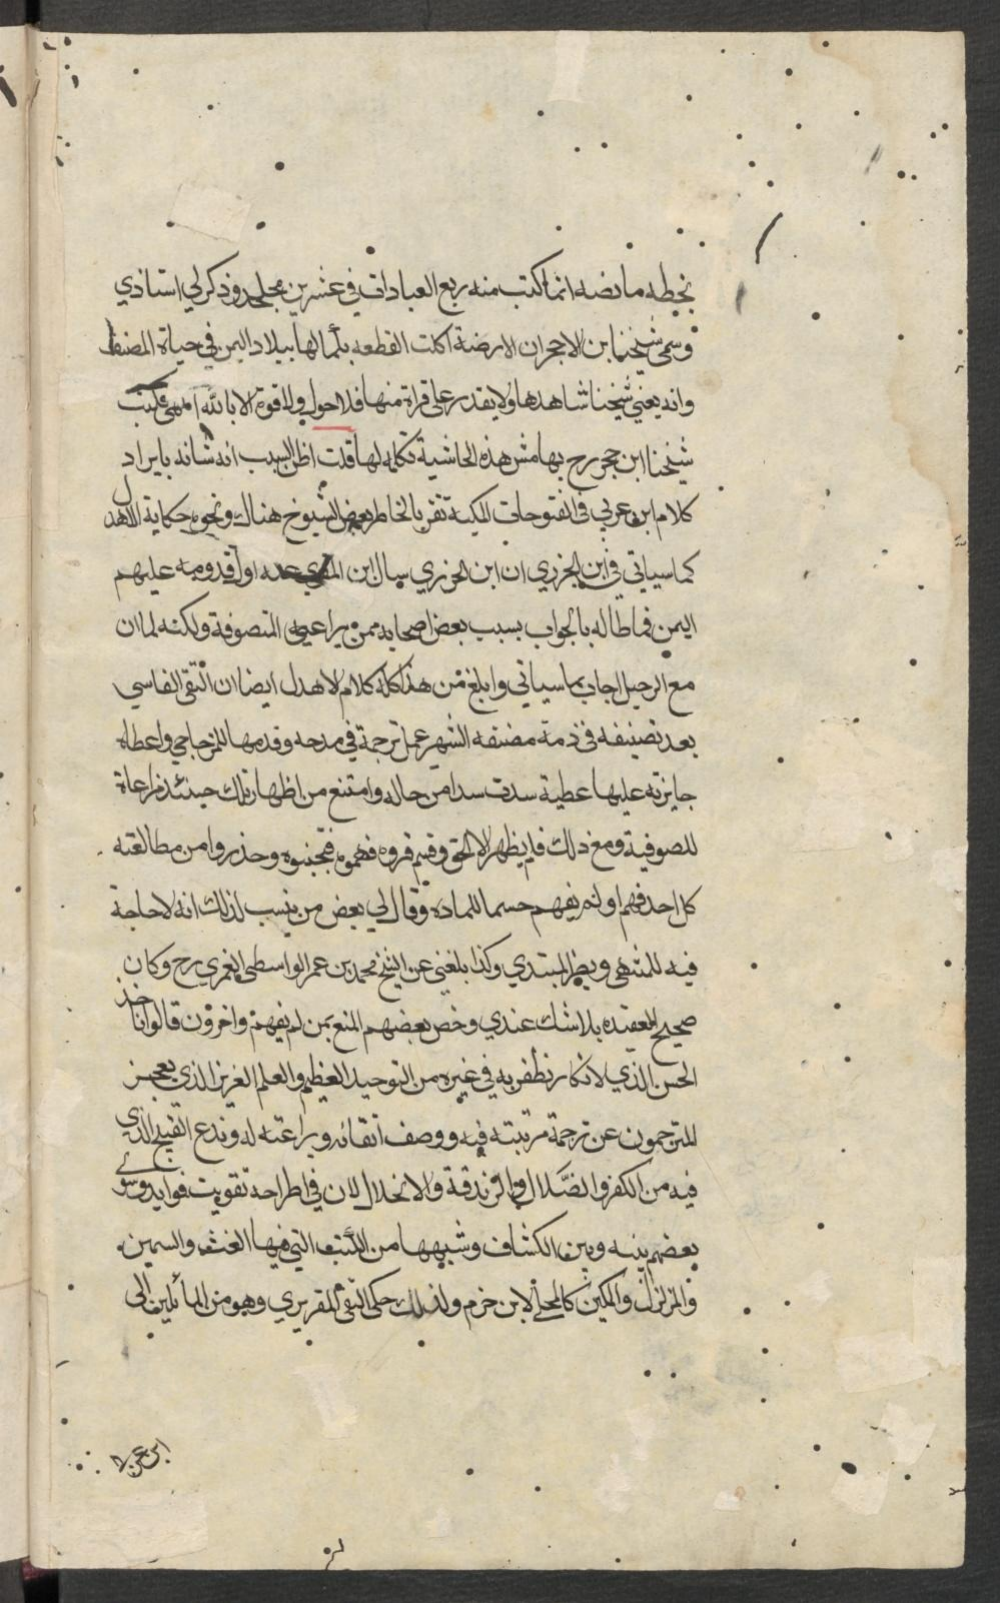 بخطه ما نصه انما كتب منه ربع العبادات في عشرين مجلد وذكر لي استاذي
وسمى شيخنا ابن الاحجر ان الارضة اكلت القطعه بكمالها ببلاد اليمن في حياة المصنف
وانه يعني شيخنا شاهدها ولا يقدر على قراة منها فلا حول ولا قوة الا بالله انتهى فكتب
شيخنا ابن حجر رح بهامش هذه الحاشية تكلمه لها قلت اظن السبب انه شانه بايراد
كلام ابن عربي في الفتوحات المكية تقربا لخاطر بعض الشيوخ هناك ونحوه حكاية الاهدل
كما سياتي في ابن الجزري ان ابن الجزري سال ابن المقري عنه اول قدومه عليهم
اليمن فماطاله بالجواب بسبب بعض اصحابه ممن يراعي المتصوفة ولكنه لما ان
مع الرحيل اجاب بما سياتي وابلغ من هذا كله كلام الاهدل ايضا ان التقي الفاسي
بعد تصنيفه في ذمه مصنفه الشهير عمل ترجمة في مدحه وقدمها للمزجاجي واعطاه
جايزته عليها عطية سدت سدا من حاله وامتنع من اظهار تلك حينئذ مراعاة
للصوفية ومع ذلك فلم يظهر الا الحق وقيم قروه فهموه فتجنبوه وحذروا من مطالعته
كل احد فهم او لم يفهم حسما للمادة وقال لي بعض من ينسب لذلك انه لا حاجة
فيه للمنتهى ويضر المبتدي وكذا بلغني عن الشيخ محمد بن عمر الواسطي الغمري رح وكان
صحيح العقيده بلا شك عندي وخص بعضهم المنع بمن لم يفهم واخرون قالوا ناخذ
الحسن الذي لا نكاد نظفر به في غيره من التوحيد العظيم والعلم الغزير الذي يعجز
المترجمون عن ترجمة مرتبته فيه ووصف اتقانه وبراعته له وندع القبيح الذي
فيه من الكفر والضلال والزندقة والانحلال لان في اطراحه تفويت فوايد وسوى
بعضهم بينه وبين الكشاف وشبهها من الكتب التي فيها الغث والسمين
والمزلزل والمكين كالمحلى لابن حزم ولذلك حكى التقي المقريزي وهو من المائلين الى
ابن عربي